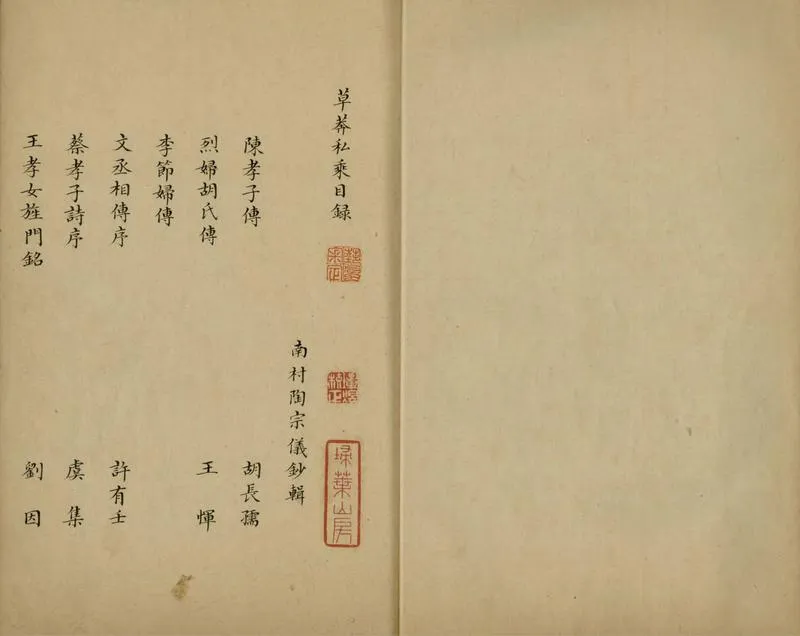 草莽私乘目録
掃葉山房
南村陶宗儀鈔輯
陳孝子傳 胡長孺
烈婦胡氏傳 王惲
李節婦傳
文丞相傳序 許有壬
蔡孝子詩序 虞集
王孝女旌門銘 劉因